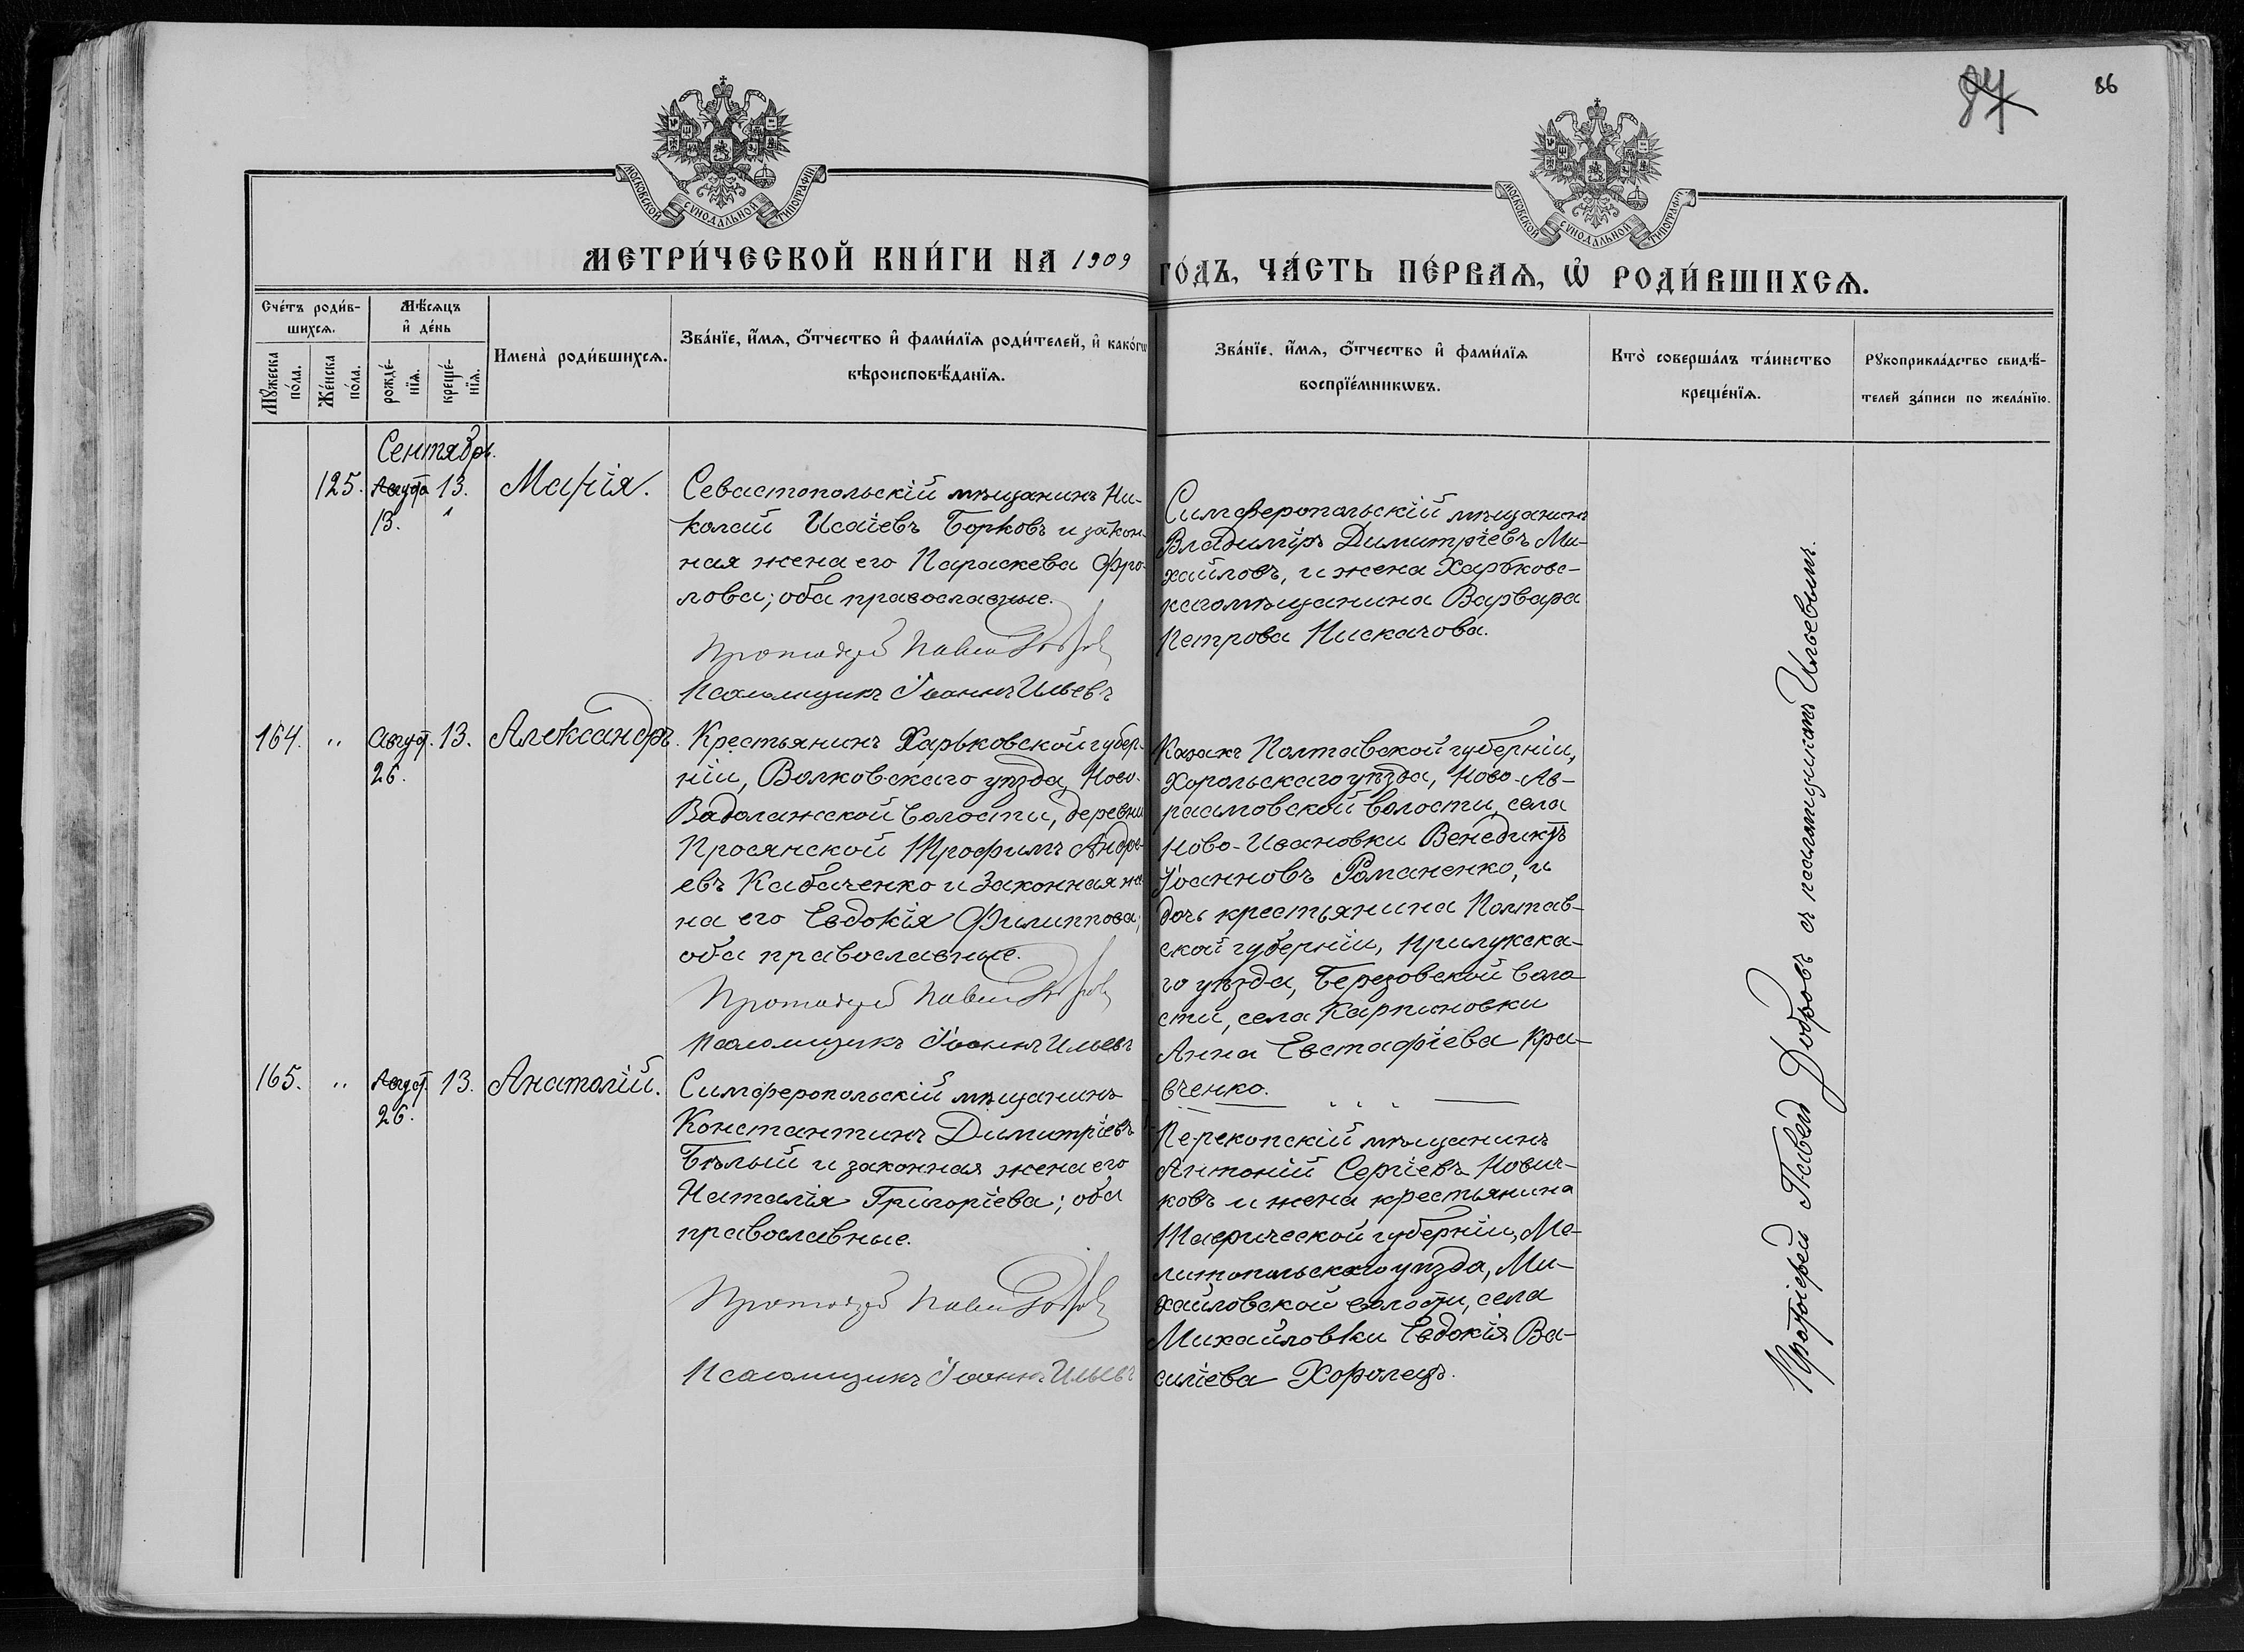 84
86
МОСКОВСКОЙ СѴНОДАЛЬНОЙ ТИПОГРАФІИ
МОСКОВСКОЙ СѴНОДАЛЬНОЙ ТИПОГРАФІИ
МЕТРИ́ЧЕСКОЙ КНИ́ГИ НА 1909 ГО́ДЪ, ЧА́СТЬ ПЕ́РВАѦ, Ѽ РОДИ́ВШИХСѦ.
Сче́тъ роди́в-
шихсѧ.
Мꙋ́жеска
по́ла.
Же́нска
по́ла.
Мѣ́сѧцъ
и҆ де́нь
рожде́-
нїѧ.
креще́-
нїѧ.
Имена̀ роди́вшихсѧ.
Зва́нїе, и҆́мѧ, ѻ҆́тчество и҆ фами́лїѧ роди́телей, и҆ како́гѡ
вѣроисповѣ́данїѧ.
Зва́нїе, и҆́мѧ, ѻ҆́тчество и҆ фами́лїѧ
воспрїе́мникѡвъ.
Кто̀ соверша́лъ та́инство
креще́нїѧ.
Рꙋкоприкла́дство свидѣ́-
телей за́писи по жела́нїю.
Сентябрь.
125. Август 13. Марія.
13.
Севастопольскій мѣщанинъ Ни-
колай Исаіевъ Борковъ и закон-
ная жена его Параскева Фро-
лова; оба православные.
Протоіерей Павелъ Добровъ
Псаломщикъ Іоаннъ Ильевъ
Симферопольскій мѣщанинъ
Владиміръ Димитріевъ Ми-
хайловъ, и жена Харьковс-
кагомѣщанина Варвара
Петрова Пискачова.
164. " Август. 13. Александръ.
26.
Крестьянинъ Харьковской губер-
ніи, Валковскаго уѣзда, Ново-
Водолажской волости, деревни
Просянской Трофимъ Андре-
евъ Кабаченко и законная же-
на его Евдокія Филиппова;
оба православные.
Протоіерей Павелъ Добровъ
Псаломщикъ Іоаннъ Ильевъ
Казакъ Полтавской губерніи,
Хорольскаго уѣзда, Ново-Ав-
рамовской волости, села
Ново-Ивановки Венедиктъ
Іоанновъ Романенко, и
дочь крестьянина Полтав-
ской губерніи, Прилукска-
го уѣзда, Березовской воло-
сти, села Карпиловки
Анна Евстафіева Кра-
вченко.
165. " Август. 13. Анатолій.
26.
Симферопольскій мѣщанинъ
Константинъ Димитріевъ
Бѣлый и законная жена его
Наталія Григоріева; оба
православные.
Протоіерей Павелъ Добровъ
Псаломщикъ Іоаннъ Ильевъ
Перекопскій мѣщанинъ
Антоній Сергіевъ Нович-
ковъ и жена крестьянина
Таврической губерніи, Ме-
литопольскаго уѣзда, Ми-
хайловской волости, села
Михайловки Евдокія Ва-
силіева Хоролецъ.
Протоіерей Павелъ Добровъ съ псаломщикомъ Ильевымъ.